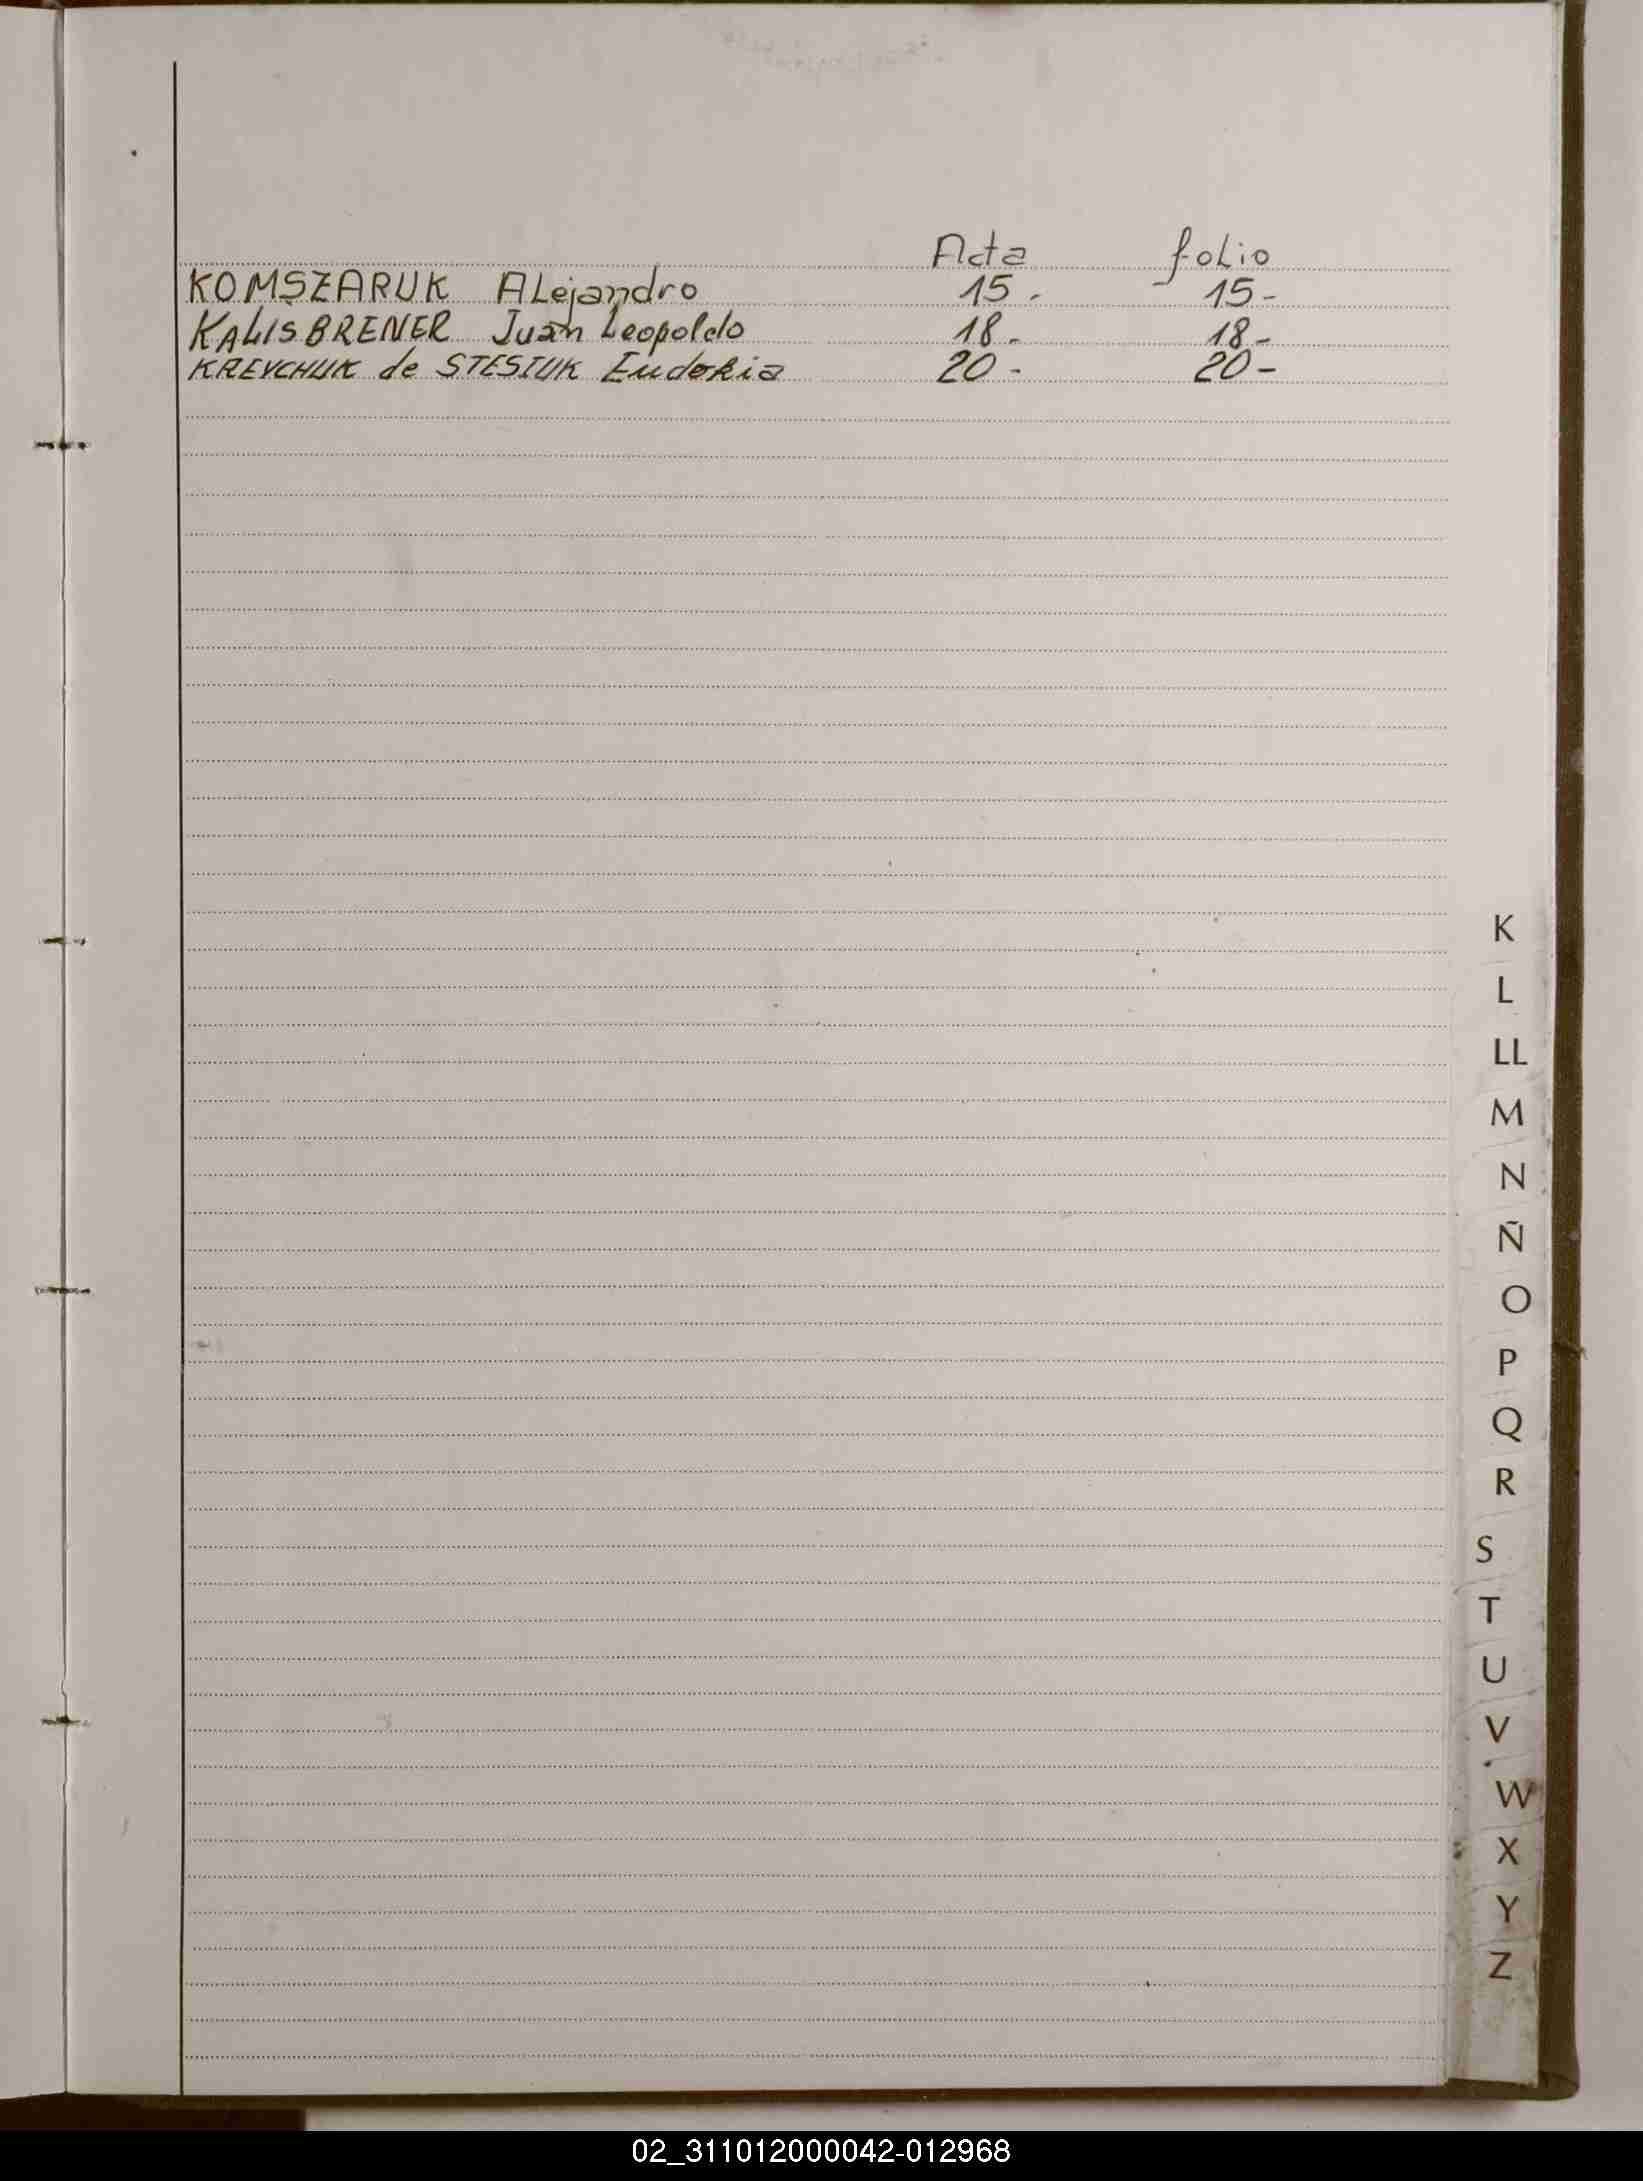 Acta folio
KOMSZARUK Alejandro 15 - 15 -
KALISBRENER Juan Leopoldo 18 - 18 -
KREVCHUK de STESIUK Eudokia 20 - 20 -
K
L
LL
M
N
Ñ
O
P
Q
R
S
T
U
V
W
X
Y
Z
02_311012000042-012968